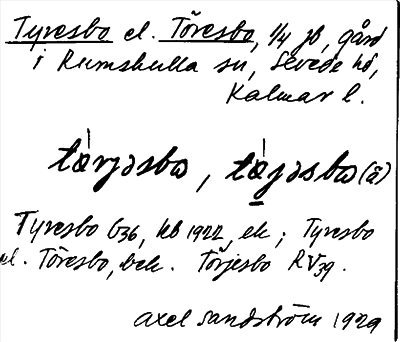 Tyresbo el. Töresbo, 1/4 jb, gård
i Rumskulla sn, Sevede hd,
Kalmar l.
tœ̀rjəsbω, tœ̀jəsbω (ä)
Tyresbo G36, kb 1922, ek; Tyresbo
el. Töresbo, bek. Törjesbo RV39.
Axel Sandström 1929